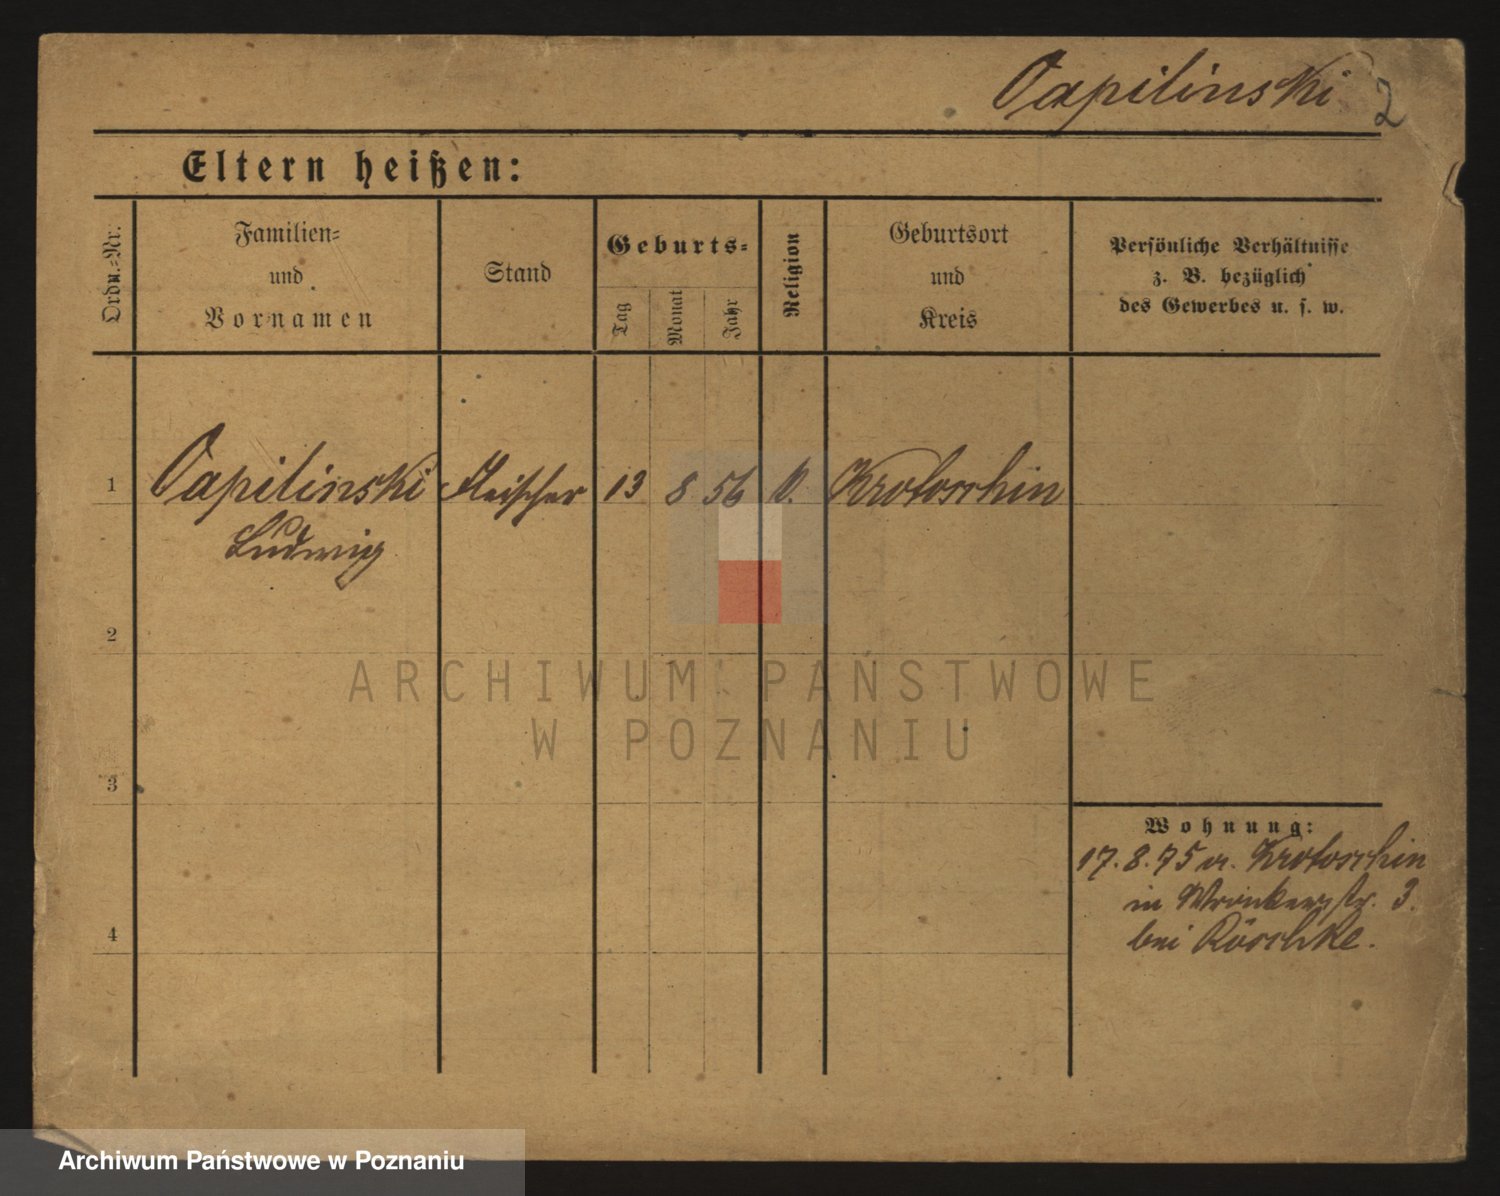 Capilinski 2
Eltern heißen:
Ordn.-Nr.
Familien-
und
Vornamen
Stand
Geburts-
Tag
Monat
Jahr
Religion
Geburtsort
und
Kreis
Persönliche Verhältnisse
z. B. bezüglich
des Gewerbes u. s. w.
1 Capilinski Fleischer 13 8 56 Krotoschin
Ludwig
2
3
4
Wohnung:
17.8.75 a. Krotoschin
in Wronkerstr. 3.
bei Röschke.
ARCHIWUM PAŃSTWOWE
W POZNANIU
Archiwum Państwowe w Poznaniu